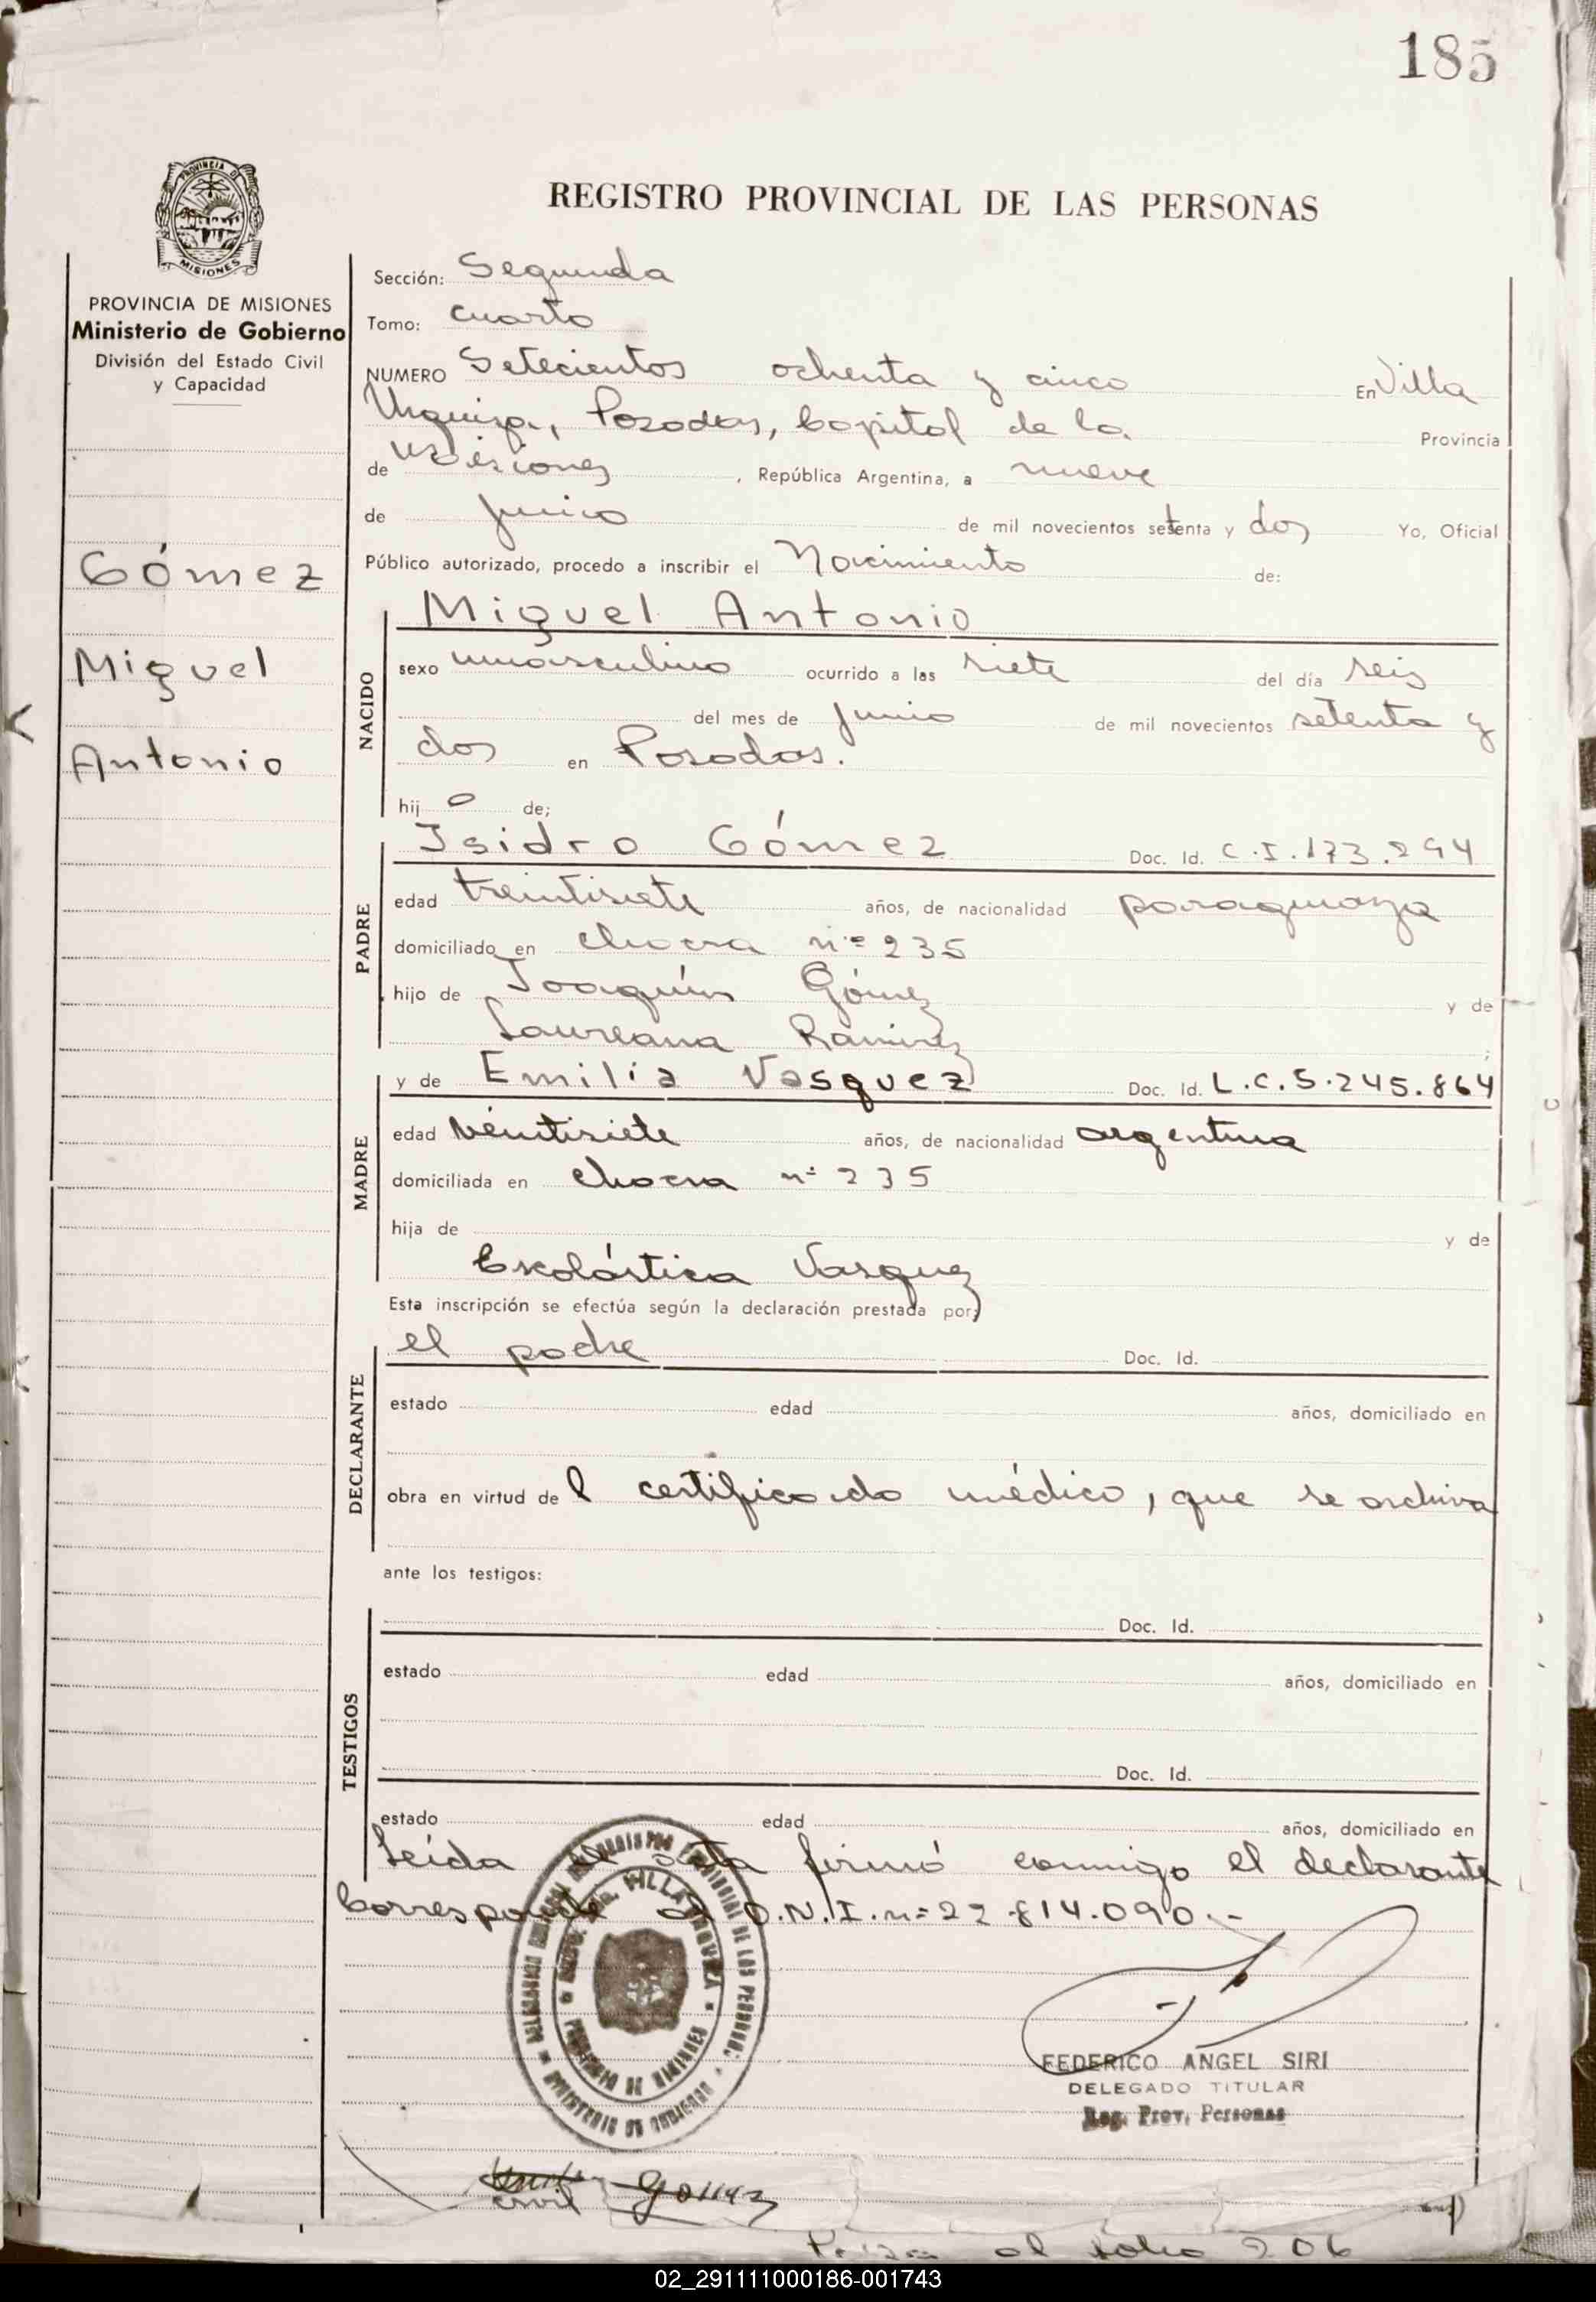 185
PROVINCIA DE
MISIONES
REGISTRO PROVINCIAL DE LAS PERSONAS
PROVINCIA DE MISIONES
Ministerio de Gobierno
División del Estado Civil
y Capacidad
Gómez
Miguel
Antonio
Sección: Segunda
Tomo: cuarto
NUMERO Setecientos ochenta y cinco En Villa
Urquiza, Posadas, Capital de la Provincia
de Misiones, República Argentina, a nueve
de junio de mil novecientos setenta y dos Yo, Oficial
Público autorizado, procedo a inscribir el Nacimiento de:
NACIDO
Miguel Antonio
sexo masculino ocurrido a las siete del día seis
del mes de junio de mil novecientos setenta y
dos en Posadas.
hijo de;
PADRE
Isidro Gómez Doc. Id. C.I.173.294
edad treintisiete años, de nacionalidad paraguaya
domiciliado en chacra nº 235
hijo de Joaquín Gómez y de
Laureana Ramirez;
MADRE
y de Emilia Vasquez Doc. Id. L.C.5.245.864
edad veintisiete años, de nacionalidad argentina
domiciliada en chacra nº 235
hija de y de
Escolástica Vasquez
Esta inscripción se efectúa según la declaración prestada por;
DECLARANTE
el padre Doc. Id.
estado edad años, domiciliado en
obra en virtud del certificado médico, que se archiva
ante los testigos:
TESTIGOS
Doc. Id.
estado edad años, domiciliado en
Doc. Id.
estado edad años, domiciliado en
Leída el acta firmó conmigo el declarante
Corresponde al D.N.I.nº 22.814.090.-
PROVINCIAL DE LAS PERSONAS
VILLA URQUIZA
PROVINCIA DE MISIONES
MINISTERIO DE GOBIERNO
FEDERICO ANGEL SIRI
DELEGADO TITULAR
Reg. Prov. Personas
Gomez
al folio 206
02_291111000186-001743